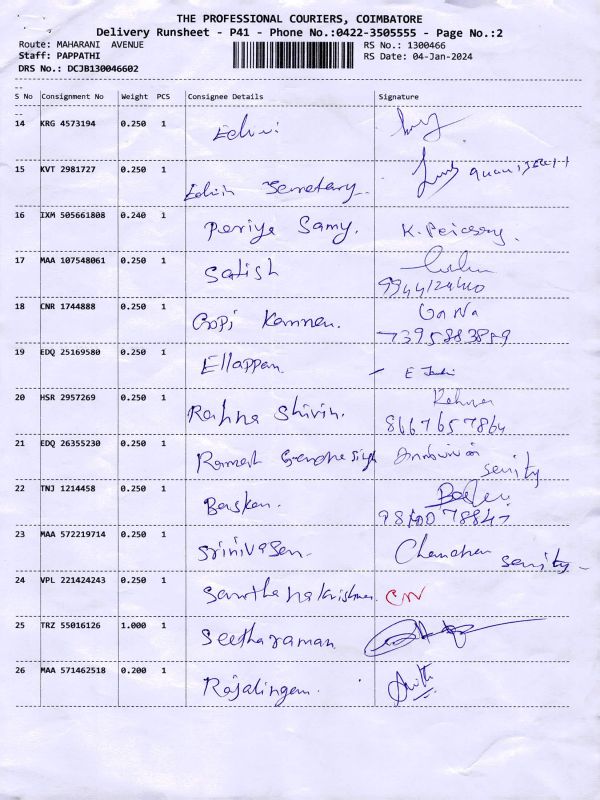 THE PROFESSIONAL COURIERS, COIMBATORE
Delivery Runsheet - P41 - Phone No.:0422-3505555 - Page No.:2
Route: MAHARANI AVENUE RS No.: 1300466
Staff: PAPPATHI RS Date: 04-Jan-2024
DRS No.: DCJB130046602
S No Consignment No Weight PCS Consignee Details Signature
14 KRG 4573194 0.250 1 Edwin
15 KVT 2981727 0.250 1 Edwin Secretary
16 IXM 505661808 0.240 1 Periya Samy. K. Peicasamy.
17 MAA 107548061 0.250 1 Satish
9944124440
18 CNR 1744888 0.250 1 Gopi Kannan. GaNa
7395883889
19 EDQ 25169580 0.250 1 Ellappan E
20 HSR 2957269 0.250 1 Rahna Shivin. Rahna
8667657864
21 EDQ 26355230 0.250 1 Ramesh senity
22 TNJ 1214458 0.250 1 Baskan.
23 MAA 572219714 0.250 1 Srinivasan. senity
24 VPL 221424243 0.250 1 Santhanakrishnan CN
25 TRZ 55016126 1.000 1 Seetharaman
26 MAA 571462518 0.200 1 Rajalingam.